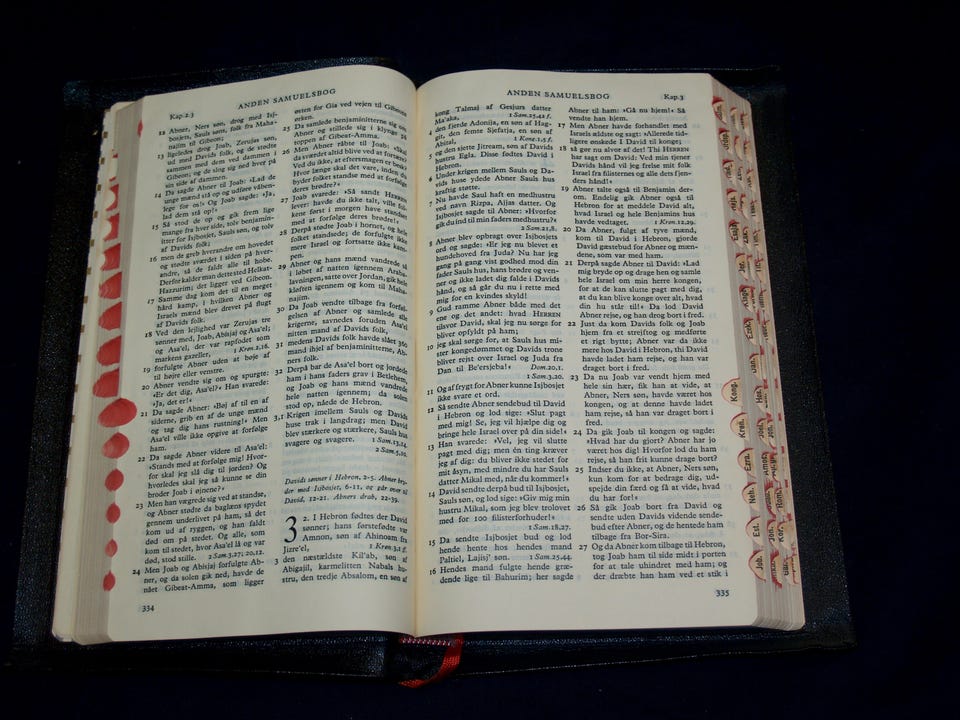 ANDEN SAMUELSBOG
Kap.2.3
12 Abner, Ners søn, drog med Isj-
bosjets, Sauls søns, folk fra Maha-
najim til Gibeon;
13 ligeledes drog Joab, Zerujas søn,
ud med Davids folk, og de stødte
sammen med dem ved dammen i
Gibeon; og de slog sig ned hver på
sin side af dammen.
14 Da sagde Abner til Joab: »Lad de
unge mænd stå op og udføre våben-
lege for os!« Og Joab sagde: »Ja,
lad dem stå op!«
15 Så stod de op og gik frem lige
mange fra hver side, tolv benjamin-
itter for Isjbosjet, Sauls søn, og tolv
af Davids folk;
16 men de greb hverandre om hovedet
og stødte sværdet i siden på hver-
andre, så de faldt alle til hobe.
Derfor kalder man dette sted Helkat-
Hazzurim; det ligger ved Gibeon.
17 Samme dag kom det til en meget
hård kamp, i hvilken Abner og
Israels mænd blev drevet på flugt
af Davids folk.
18 Ved den lejlighed var Zerujas tre
sønner med, Joab, Abisjaj og Asa'el;
og Asa'el, der var rapfodet som
markens gazeller,
1 Krøn.2,16.
19 forfulgte Abner uden at bøje af
til højre eller venstre.
20 Abner vendte sig om og spurgte:
»Er det dig, Asa'el?« Han svarede:
»Ja, det er!«
21 Da sagde Abner: »Bøj af til en af
siderne, grib en af de unge mænd
og tag dig hans rustning!« Men
Asa'el ville ikke opgive at forfølge
ham.
22 Da sagde Abner videre til Asa'el:
»Stands med at forfølge mig! Hvor-
for skal jeg slå dig til jorden? Og
hvorledes skal jeg så kunne se din
broder Joab i øjnene?«
23 Men han vægrede sig ved at standse,
og Abner stødte da baglæns spydet
gennem underlivet på ham, så det
kom ud af ryggen, og han faldt
død om på stedet. Og alle, som
kom til stedet, hvor Asa'el lå og var
død, stod stille.
2 Sam.3,27; 20,12.
24 Men Joab og Abisjaj forfulgte Ab-
ner, og da solen gik ned, havde de
nået Gibeat-Amma, som ligger
østen for Gia ved vejen til Gibeons
ørken.
25 Da samlede benjaminitterne sig om
Abner og stillede sig i klynge på
toppen af Gibeat-Amma.
26 Men Abner råbte til Joab: »Skal
da sværdet altid blive ved at fortære?
Ved du ikke, at eftersmagen er besk?
Hvor længe skal det vare, inden du
byder folket standse med at forfølge
deres brødre?«
27 Joab svarede: »Så sandt HERREN
lever: havde du ikke talt, ville fol-
kene først i morgen have standset
med at forfølge deres brødre!«
28 Derpå stødte Joab i hornet, og hele
folket standsede; de forfulgte ikke
mere Israel og fortsatte ikke kam-
pen.
29 Abner og hans mænd vandrede så
i løbet af natten igennem Araba-
lavningen, satte over Jordan, gik hele
kløften igennem og kom til Maha-
najim.
30 Da Joab vendte tilbage fra forføl-
gelsen af Abner og samlede alle
krigerne, savnedes foruden Asa'el
nitten mand af Davids folk,
31 medens Davids folk havde slået 360
mand ihjel af benjaminitterne, Ab-
ners folk.
32 Derpå bar de Asa'el bort og jordede
ham i hans faders grav i Betlehem,
og Joab og hans mænd vandrede
hele natten igennem; da solen
stod op, nåede de Hebron.
3,1 Krigen imellem Sauls og Davids
huse trak i langdrag; men David
blev stærkere og stærkere, Sauls hus
svagere og svagere.
1 Sam.15,14.
2 Sam.5,10.
Davids sønner i Hebron, 2-5. Abner bry-
der med Isbosjet, 6-11, og går over til
David, 12-21. Abners drab, 22-39.
3 2. I Hebron fødtes der David
sønner; hans førstefødte var
Amnon, søn af Ahinoam fra
Jizre'el,
1 Krøn.3,1 f.
3 den næstældste Kil'ab, søn af
Abigajil, karmelitten Nabals hu-
stru, den tredje Absalom, en søn af
334
ANDEN SAMUELSBOG
Kap.3
kong Talmaj af Gesjurs datter
Ma'aka,
1 Sam.25,42 f.
4 den fjerde Adonija, en søn af Hag-
git, den femte Sjefatja, en søn af
Abital,
1 Kong.1,5 f.
5 og den sjette Jitream, søn af Davids
hustru Egla. Disse fødtes David i
Hebron.
6 Under krigen mellem Sauls og Da-
vids huse ydede Abner Sauls hus
kraftig støtte.
7 Nu havde Saul haft en medhustru
ved navn Rizpa, Ajjas datter. Og
Isjbosjet sagde til Abner: »Hvorfor
gik du ind til min faders medhustru?«
2 Sam.21,8.
8 Abner blev opbragt over Isjbosjets
ord og sagde: »Er jeg nu blevet et
hundehoved fra Juda? Nu har jeg
gang på gang vist godhed mod din
fader Sauls hus, hans brødre og ven-
ner og ikke ladet dig falde i Davids
hånd, og så går du nu i rette med
mig for en kvindes skyld!
9 Gud ramme Abner både med det
ene og det andet: hvad HERREN
tilsvor David, skal jeg nu sørge for
bliver opfyldt på ham;
10 jeg skal sørge for, at Sauls hus mi-
ster kongedømmet og Davids trone
bliver rejst over Israel og Juda fra
Dan til Be'ersjeba!«
Dom.20,1.
1 Sam.3,20.
11 Og af frygt for Abner kunne Isjbosjet
ikke svare et ord.
12 Så sendte Abner sendebud til David
i Hebron og lod sige: »Slut pagt
med mig! Se, jeg vil hjælpe dig og
bringe hele Israel over på din side!«
13 Han svarede: »Vel, jeg vil slutte
pagt med dig; men én ting kræver
jeg af dig: du bliver ikke stedet for
mit åsyn, med mindre du har Sauls
datter Mikal med, når du kommer!«
14 David sendte derpå bud til Isjbosjet,
Sauls søn, og lod sige: »Giv mig min
hustru Mikal, som jeg blev trolovet
med for 100 filisterforhuder!«
1 Sam.18,27.
15 Da sendte Isjbosjet bud og lod
hende hente hos hendes mand
Paltiel, Lajisj' søn.
1 Sam.25,44.
16 Hendes mand fulgte hende græ-
dende lige til Bahurim; her sagde
Abner til ham: »Gå nu hjem!« Så
vendte han hjem.
17 Men Abner havde forhandlet med
Israels ældste og sagt: »Allerede tid-
ligere ønskede I David til konge;
18 så gør nu alvor af det! Thi HERREN
har sagt om David: Ved min tjener
Davids hånd vil jeg frelse mit folk
Israel fra filisterne og alle dets fjen-
ders hånd!«
19 Abner talte også til Benjamin der-
om. Endelig gik Abner også til
Hebron for at meddele David alt,
hvad Israel og hele Benjamins hus
havde vedtaget.
1 Krøn.12,29.
20 Da Abner, fulgt af tyve mænd,
kom til David i Hebron, gjorde
David gæstebud for Abner og mæn-
dene, som var med ham.
21 Derpå sagde Abner til David: »Lad
mig bryde op og drage hen og samle
hele Israel om min herre kongen,
for at de kan slutte pagt med dig,
at du kan blive konge over alt, hvad
din hu står til!« Da lod David
Abner rejse, og han drog bort i fred.
22 Just da kom Davids folk og Joab
hjem fra et strejftog og medførte
et rigt bytte; Abner var da ikke
mere hos David i Hebron, thi David
havde ladet ham rejse, og han var
draget bort i fred.
23 Da nu Joab var vendt hjem med
hele sin hær, fik han at vide, at
Abner, Ners søn, havde været hos
kongen, og at denne havde ladet
ham rejse, så han var draget bort i
fred.
24 Da gik Joab til kongen og sagde:
»Hvad har du gjort? Abner har jo
været hos dig! Hvorfor lod du ham
rejse, så han frit kunne drage bort?
25 Indser du ikke, at Abner, Ners søn,
kun kom for at bedrage dig, ud-
spejde din færd og få at vide, hvad
du har for!«
26 Så gik Joab bort fra David og
sendte uden Davids vidende sende-
bud efter Abner, og de hentede ham
tilbage fra Bor-Sira.
27 Og da Abner kom tilbage til Hebron,
tog Joab ham til side midt i porten
for at tale uhindret med ham; og
der dræbte han ham ved et stik i
335
Kong.
Krøn.
Ezra.
Neh.
Est.
Job.